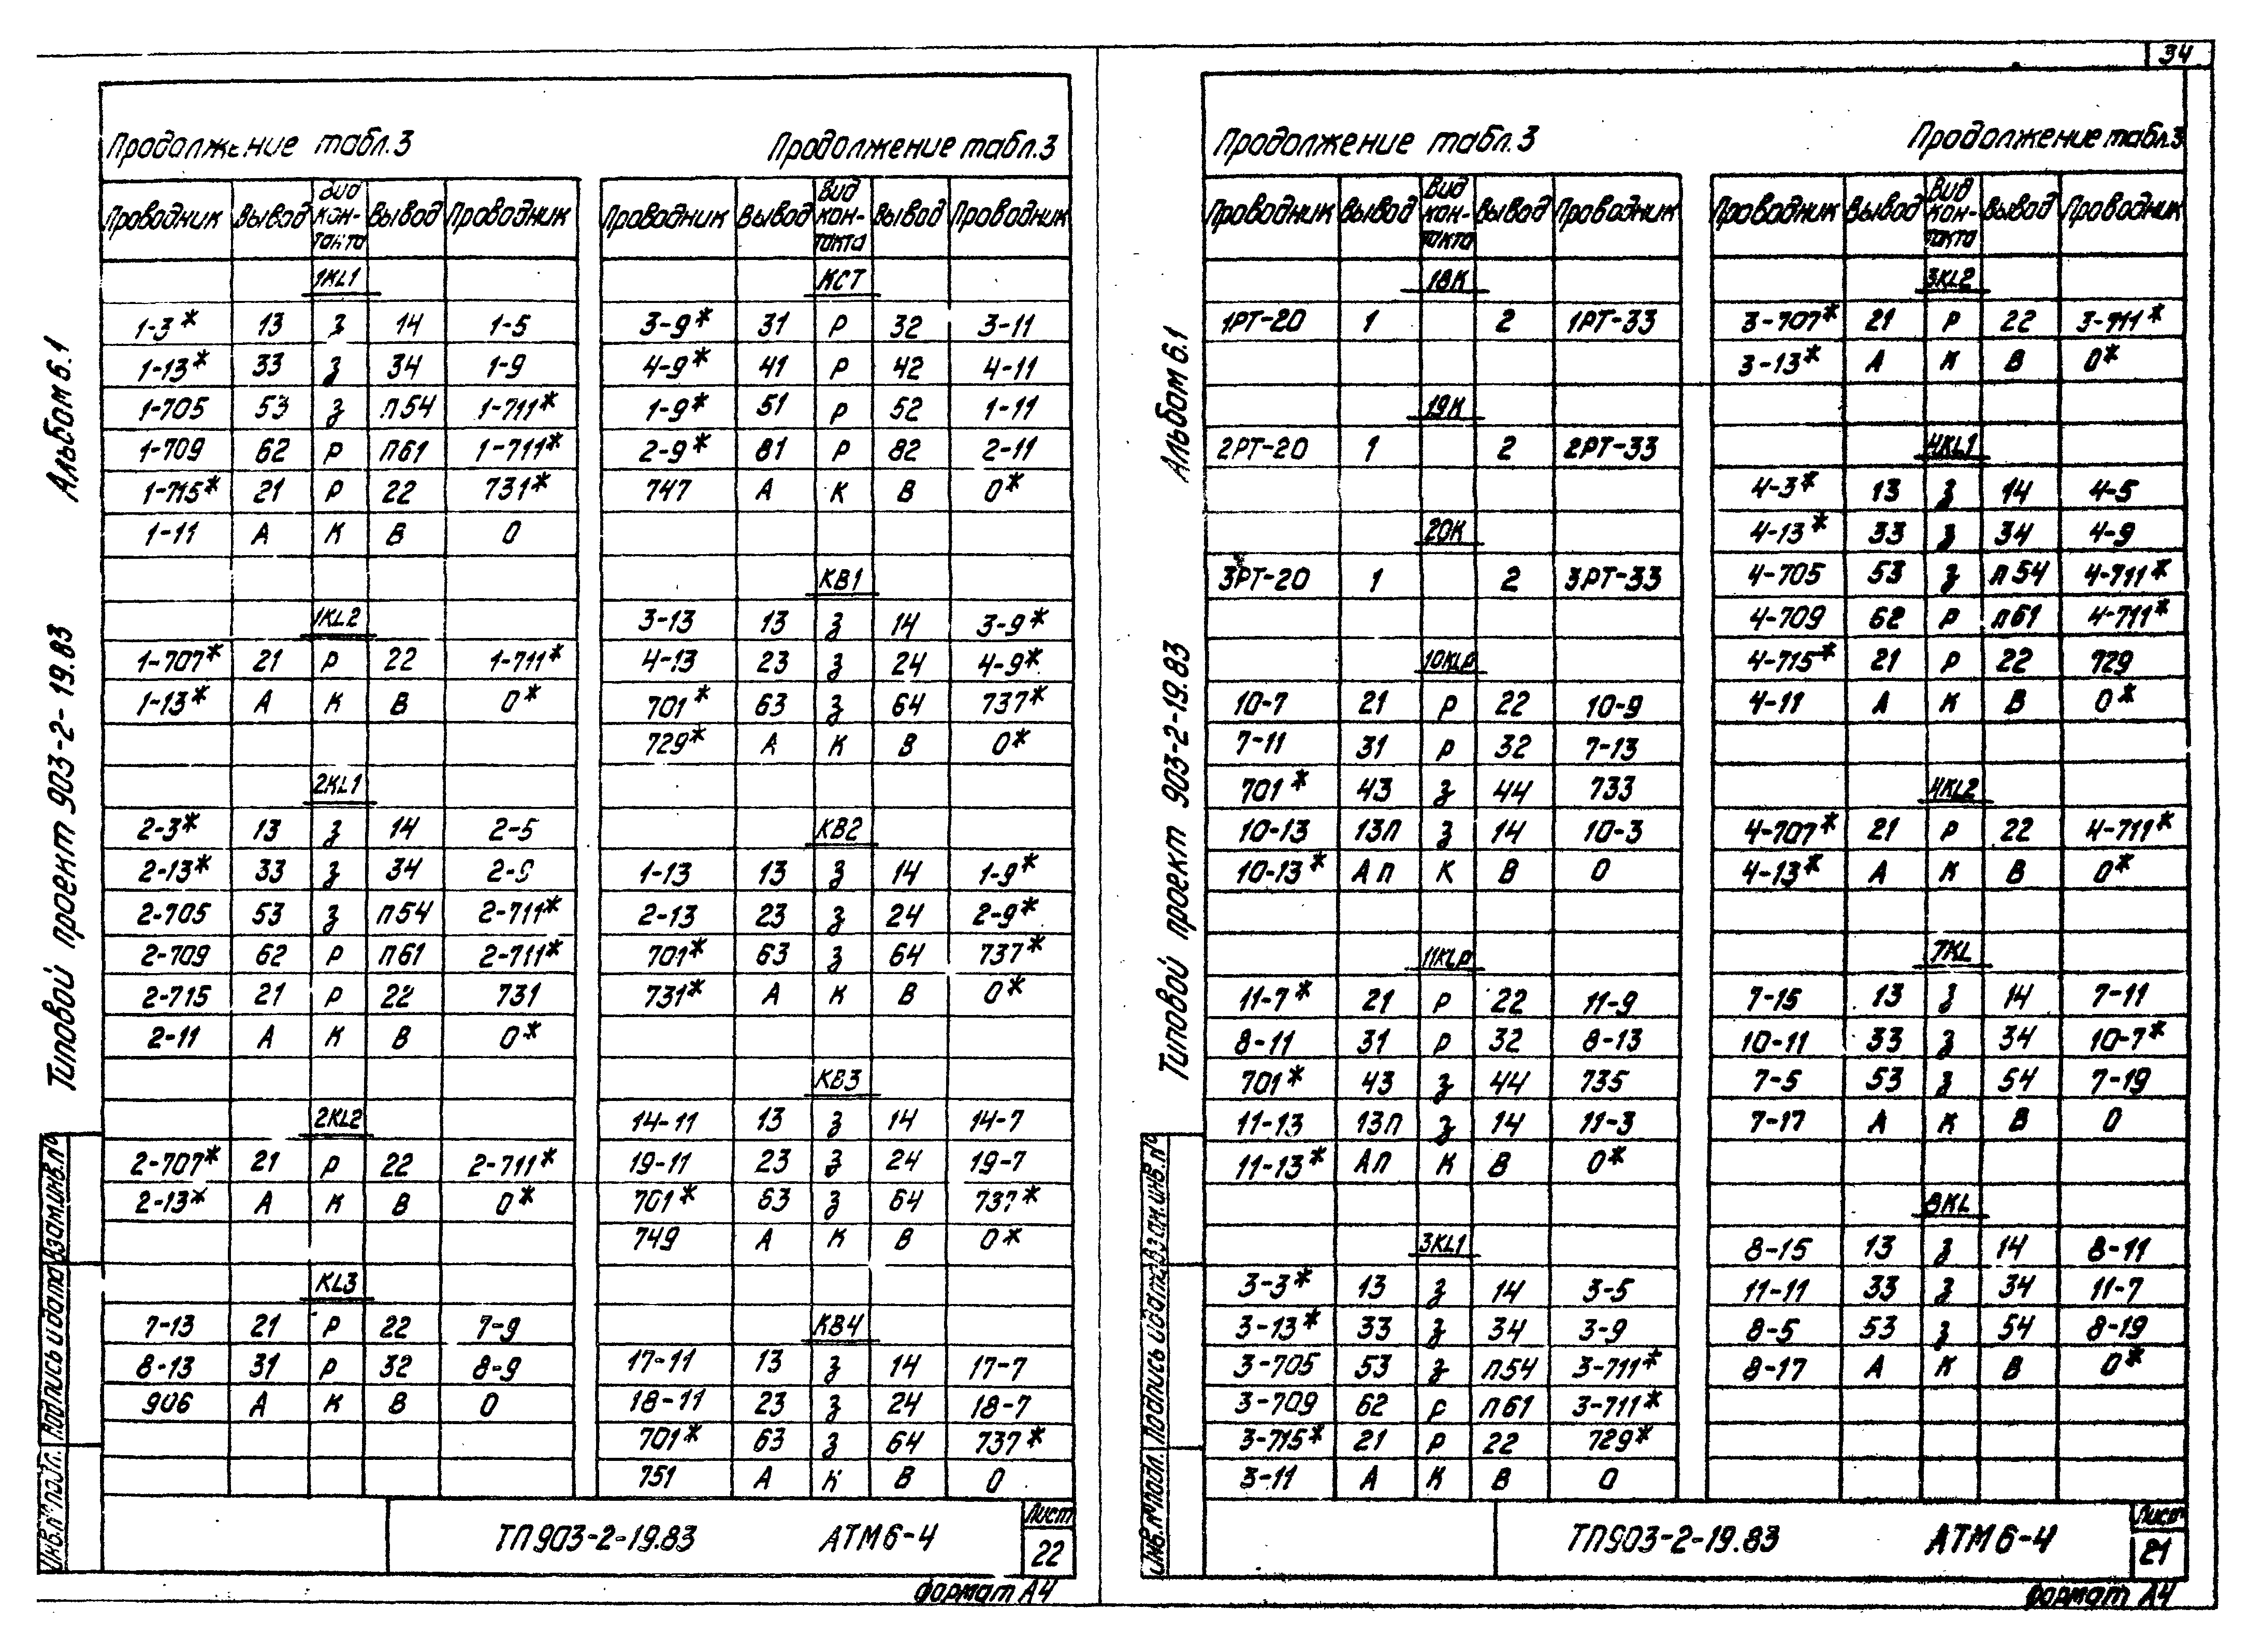 34
Альбом 6.1
Типовой проект 903-2-19.83
Взам.инв.№
Подпись и дата
Инв.№ подл.
Продолжение табл.3
Проводник Вывод Вид контакта Вывод Проводник
1KL1
1-3* 13 з 14 1-5
1-13* 33 з 34 1-9
1-705 53 з п54 1-711*
1-709 62 р п61 1-711*
1-715* 21 р 22 731*
1-11 А К В 0
1KL2
1-707* 21 р 22 1-711*
1-13* А К В 0*
2KL1
2-3* 13 з 14 2-5
2-13* 33 з 34 2-9
2-705 53 з п54 2-711*
2-709 62 р п61 2-711*
2-715 21 р 22 731
2-11 А К В 0*
2KL2
2-707* 21 р 22 2-711*
2-13* А К В 0*
KL3
7-13 21 р 22 7-9
8-13 31 р 32 8-9
906 А К В 0
Продолжение табл.3
Проводник Вывод Вид контакта Вывод Проводник
КСТ
3-9* 31 р 32 3-11
4-9* 41 р 42 4-11
1-9* 51 р 52 1-11
2-9* 81 р 82 2-11
747 А К В 0*
КВ1
3-13 13 з 14 3-9*
4-13 23 з 24 4-9*
701* 63 з 64 737*
729* А К В 0*
КВ2
1-13 13 з 14 1-9*
2-13 23 з 24 2-9*
701* 63 з 64 737*
731* А К В 0*
КВ3
14-11 13 з 14 14-7
19-11 23 з 24 19-7
701* 63 з 64 737*
749 А К В 0*
КВ4
17-11 13 з 14 17-7
18-11 23 з 24 18-7
701* 63 з 64 737*
751 А К В 0
ТП903-2-19.83 АТМ6-4
Лист
22
формат А4
Альбом 6.1
Типовой проект 903-2-19.83
Взам.инв.№
Подпись и дата
Инв.№ подл.
Продолжение табл.3
Проводник Вывод Вид контакта Вывод Проводник
18К
1РТ-20 1 2 1РТ-33
19К
2РТ-20 1 2 2РТ-33
20К
3РТ-20 1 2 3РТ-33
10KLP
10-7 21 р 22 10-9
7-11 31 р 32 7-13
701* 43 з 44 733
10-13 13п з 14 10-3
10-13* Ап К В 0
11KLP
11-7* 21 р 22 11-9
8-11 31 р 32 8-13
701* 43 з 44 735
11-13 13п з 14 11-3
11-13* Ап К В 0*
3KL1
3-3* 13 з 14 3-5
3-13* 33 з 34 3-9
3-705 53 з п54 3-711*
3-709 62 р п61 3-711*
3-715* 21 р 22 729*
3-11 А К В 0
Продолжение табл.3
Проводник Вывод Вид контакта Вывод Проводник
3KL2
3-707* 21 р 22 3-711*
3-13* А К В 0*
4KL1
4-3* 13 з 14 4-5
4-13* 33 з 34 4-9
4-705 53 з п54 4-711*
4-709 62 р п61 4-711*
4-715* 21 р 22 729
4-11 А К В 0*
4KL2
4-707* 21 р 22 4-711*
4-13* А К В 0*
7KL
7-15 13 з 14 7-11
10-11 33 з 34 10-7*
7-5 53 з 54 7-19
7-17 А К В 0
8KL
8-15 13 з 14 8-11
11-11 33 з 34 11-7
8-5 53 з 54 8-19
8-17 А К В 0*
ТП903-2-19.83 АТМ6-4
Лист
21
формат А4